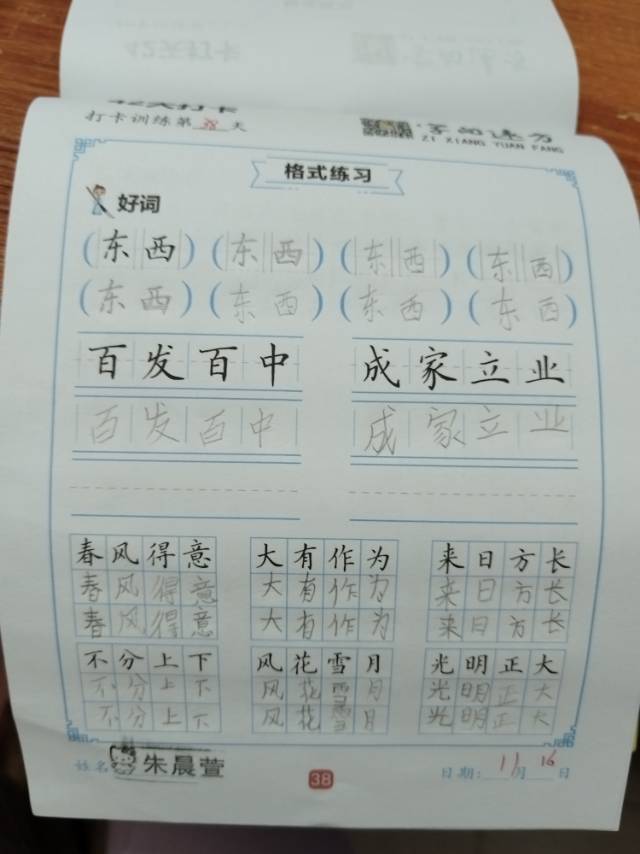 42天打卡
打卡训练第38天
·字向远方
ZI XIANG YUAN FANG
格式练习
好词
(东西) (东西) (东西) (东西)
(东西) (东西) (东西) (东西)
百发百中 成家立业
百发百中 成家立业
春风得意 大有作为 来日方长
春风得意 大有作为 来日方长
春风得意 大有作为 来日方长
不分上下 风花雪月 光明正大
不分上下 风花雪月 光明正大
不分上下 风花雪月 光明正大
姓名 朱晨萱 38 日期: 11月16日